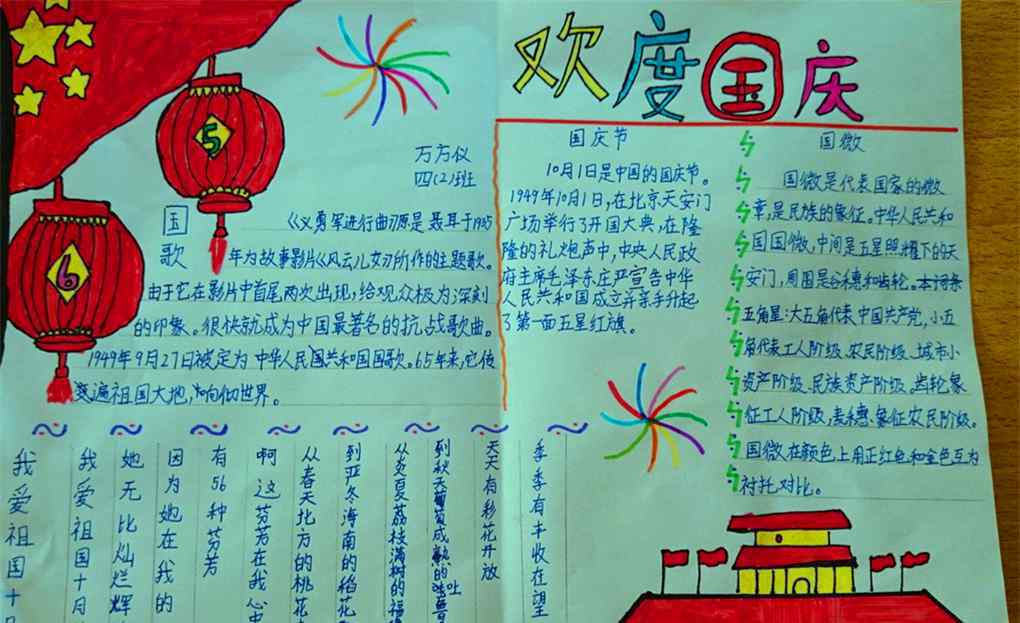 欢度国庆
5
6
万方仪
四(2)班
国歌
《义勇军进行曲》原是聂耳于1935
年为故事影片《风云儿女》所作的主题歌。
由于它在影片中首尾两次出现,给观众极为深刻
的印象。很快就成为中国最著名的抗战歌曲。
1949年9月27日被定为中华人民国共和国国歌。65年来,它传
遍祖国大地,
世界。
国庆节
10月1日是中国的国庆节。
1949年10月1日,在北京天安门
广场举行了开国大典,在隆
隆的礼炮声中,中央人民政
府主席毛泽东庄严宣告中华
人民共和国成立并亲手升起
了第一面五星红旗。
国微
国微是代表国家的微
章,是民族的象征。中华人民共和
国国微,中间是五星照耀下的天
安门,周围是谷穗和齿轮。本词条
五角星:大五角代表中国共产党,小五
角代表工人阶级、农民阶级、城市小
资产阶级、民族资产阶级。齿轮象
征工人阶级,麦穗、象征农民阶级。
国微在颜色上用正红色和金色互为
衬托对比。
我爱祖国十
我爱祖国十月
她无比灿烂辉
因为她在我的
有56种芬芳
啊这芬芳在我心中
从春天北方的桃花
到严冬海南的稻花
从炎夏荔枝满树的福
到秋天葡萄成熟的吐鲁
天天有彩花开放
季季有丰收在望